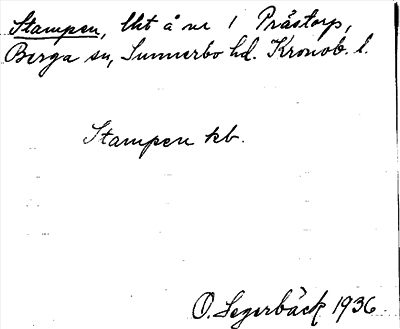 Stampen, lht å nr 1 Prästorp,
Berga sn, Sunnerbo hd. Kronob. l.
Stampen kb.
O. Segerbäck 1936